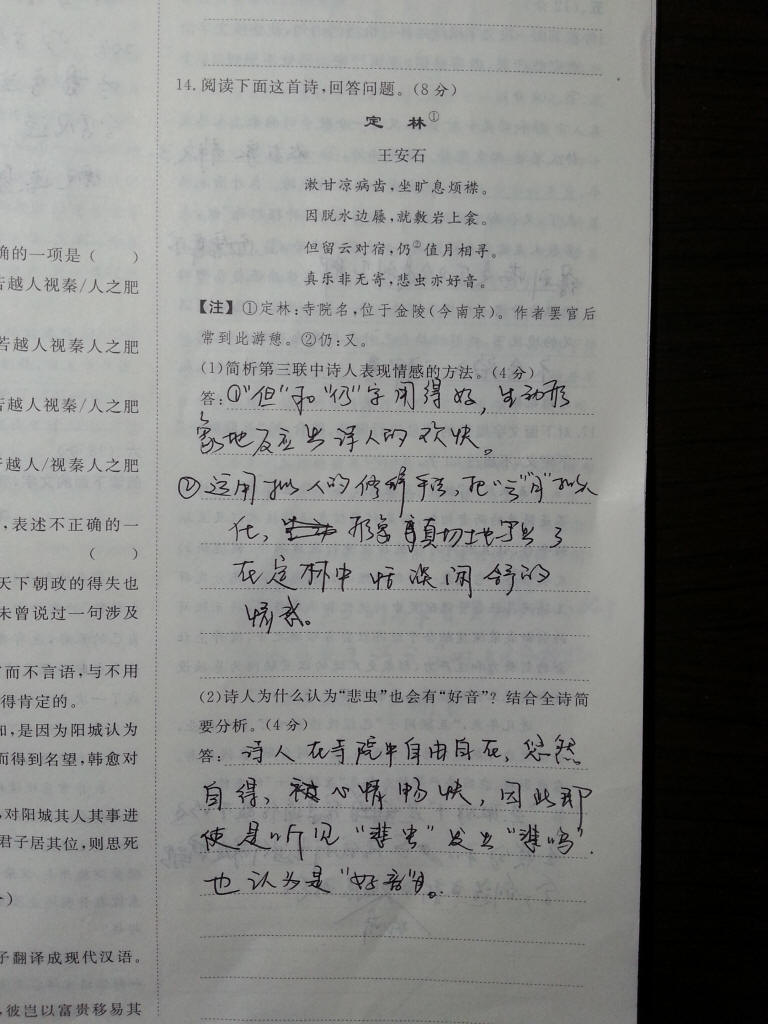 确的一项是（　　）
若越人视秦/人之肥
若越人视秦人之肥
若越人视秦/人之肥
若越人/视秦人之肥
，表述不正确的一
（　　）
天下朝政的得失也
未曾说过一句涉及
而不言语，与不用
得肯定的。
知，是因为阳城认为
而得到名望，韩愈对
对阳城其人其事进
君子居其位，则思死
子翻译成现代汉语。
，彼岂以富贵移易其
14.阅读下面这首诗，回答问题。（8分）
定　林①
王安石
漱甘凉病齿，坐旷息烦襟。
因脱水边屦，就敷岩上衾。
但留云对宿，仍②值月相寻。
真乐非无寄，悲虫亦好音。
【注】①定林：寺院名，位于金陵（今南京）。作者罢官后
常到此游憩。②仍：又。
（1）简析第三联中诗人表现情感的方法。（4分）
答：①“但”和“仍”字用得好，生动形
象地反应出诗人的欢快。
②运用拟人的修辞手法，把“云”“月”拟人
化，形象真切地写出了
在定林中恬淡闲舒的
情感。
（2）诗人为什么认为“悲虫”也会有“好音”？结合全诗简
要分析。（4分）
答：诗人在寺院中自由自在，悠然
自得，被心情畅快，因此即
使是听见“悲虫”发出“悲鸣”
也认为是“好音”。